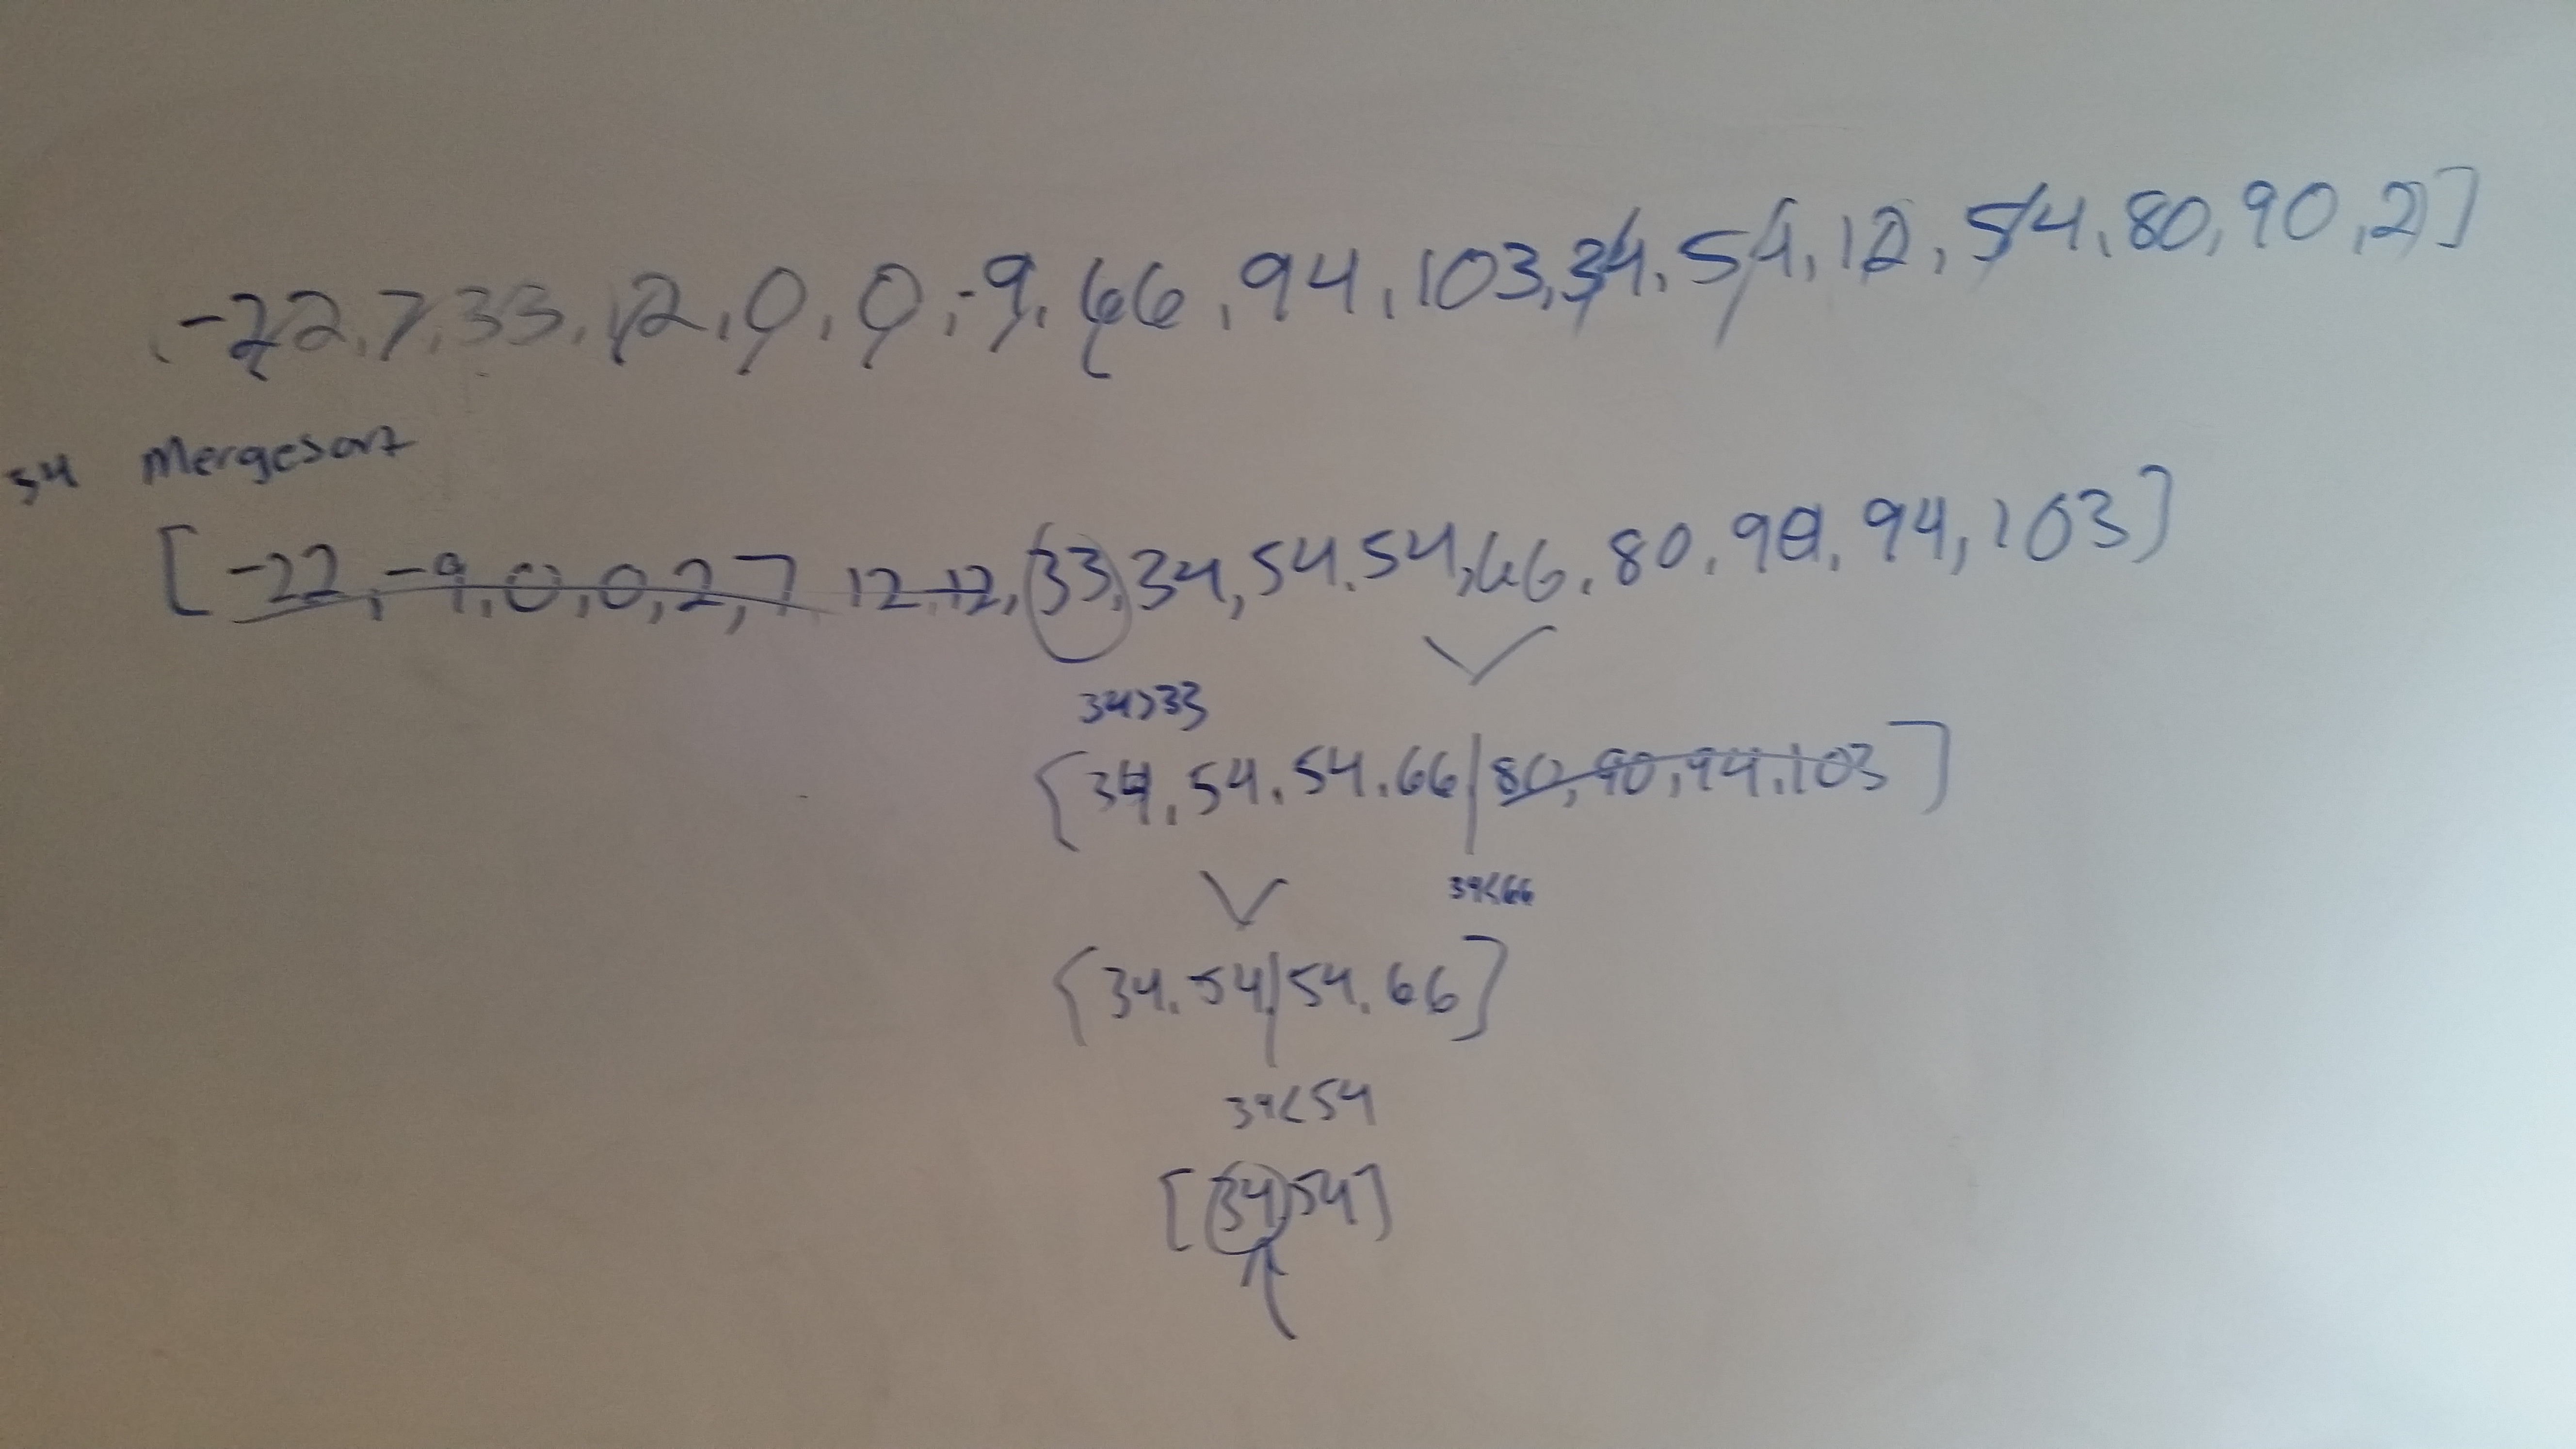 -22, 7, 33, 12, 0, 0, -9, 66, 94, 103, 34, 54, 12, 54, 80, 90, 2]
34 Mergesort
[-22, -9, 0, 0, 2, 7 12, 12, 33, 34, 54, 54, 66, 80, 90, 94, 103]
34>33
[34, 54, 54, 66|80, 90, 94, 103]
34<66
[34, 54,|54, 66]
34<54
[34, 54]